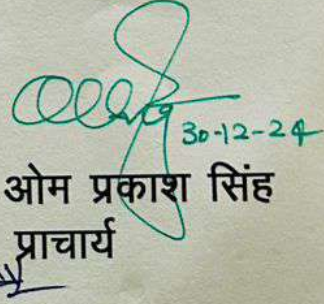 30-12-24
ओम प्रकाश सिंह
प्राचार्य